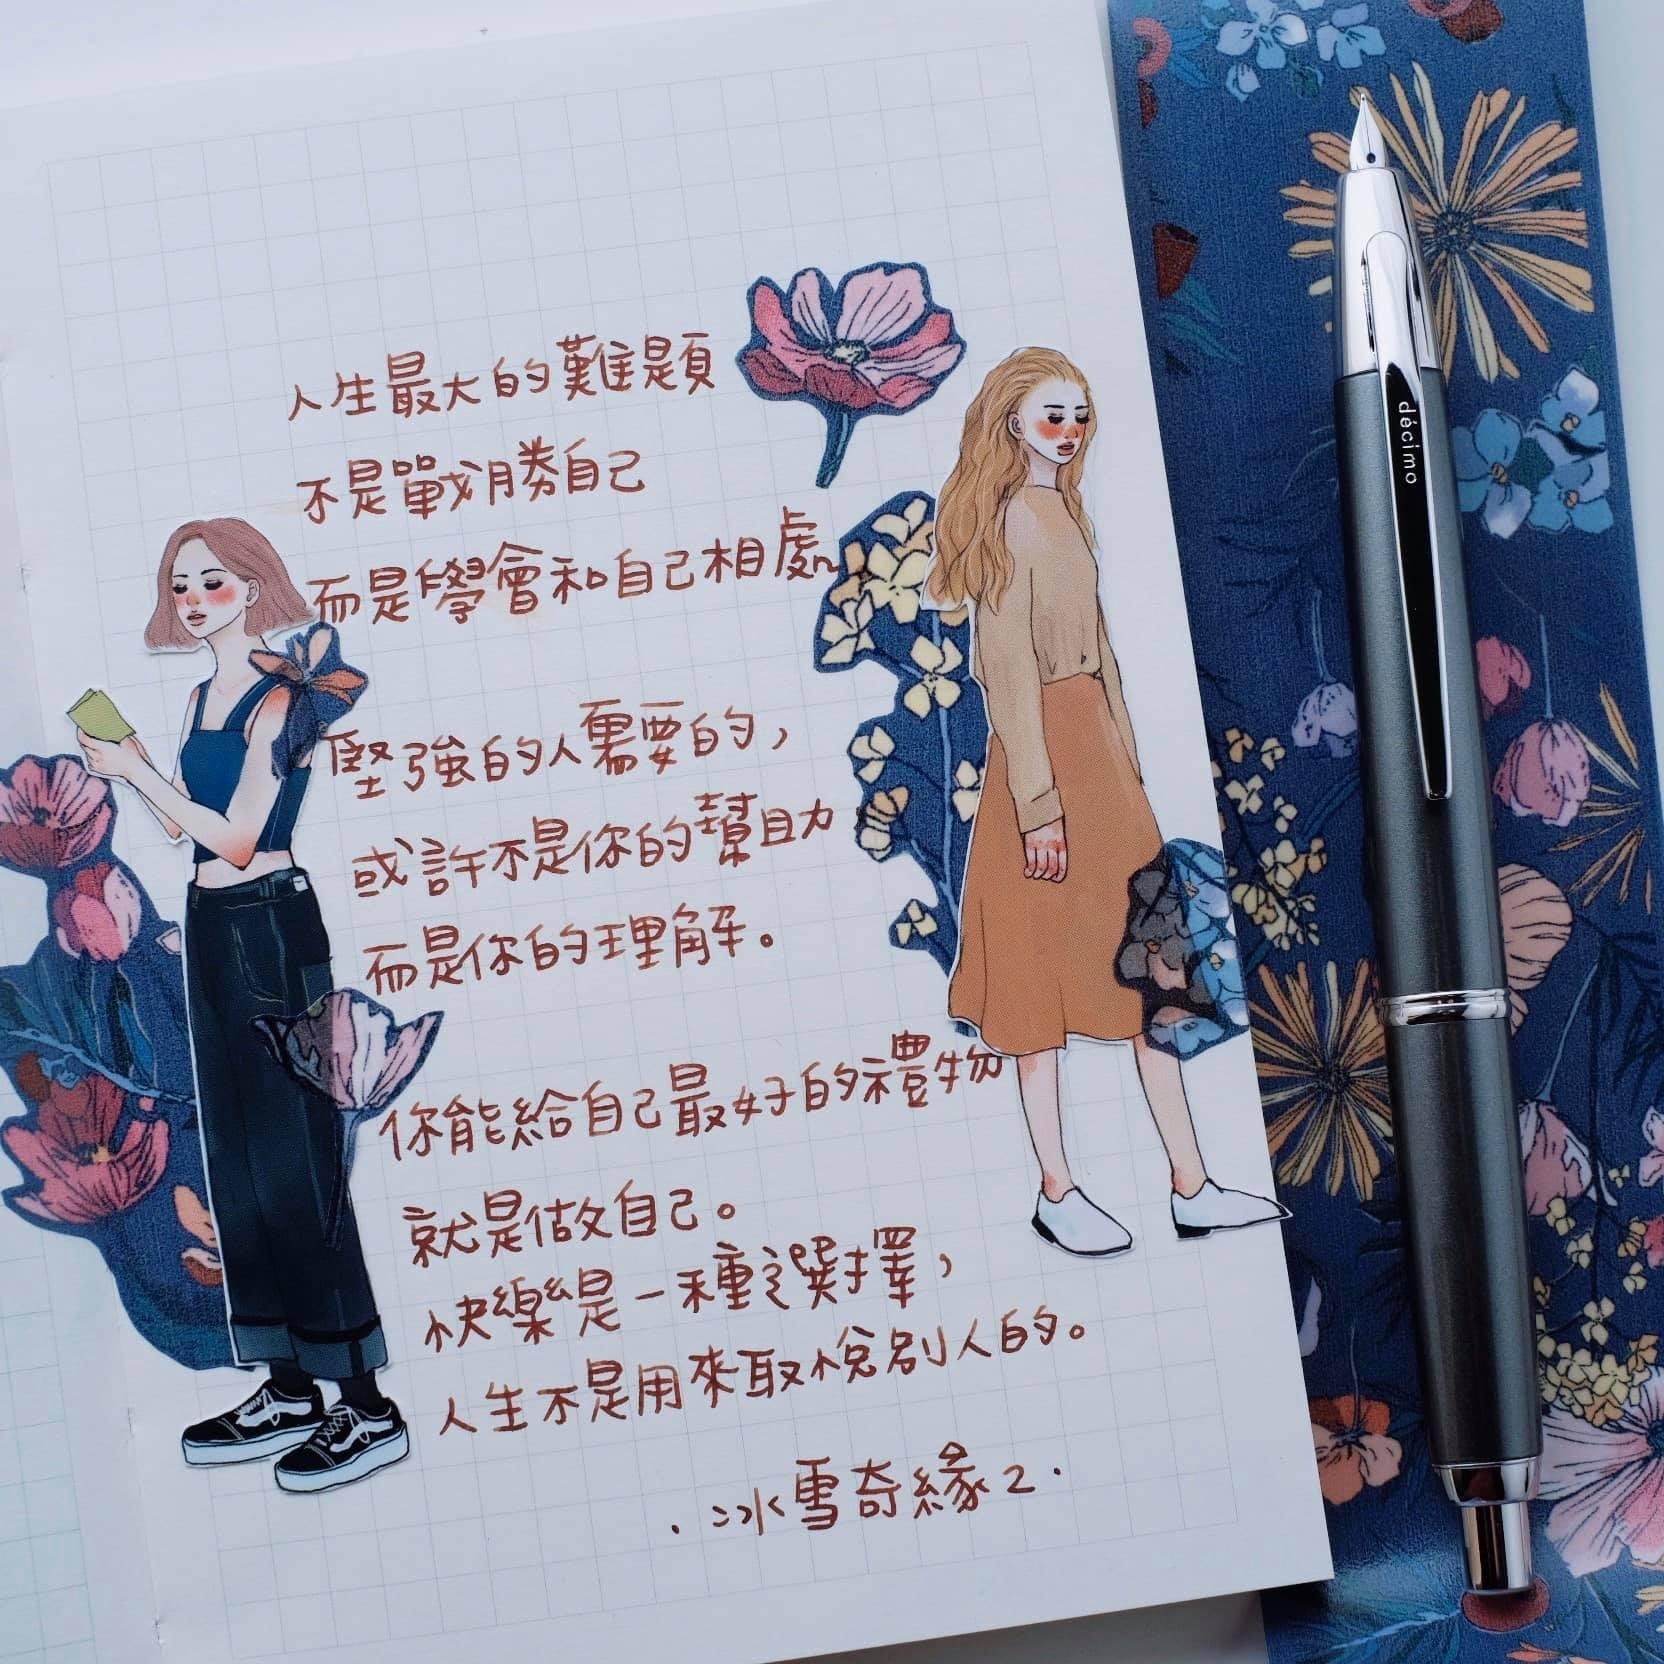 人生最大的難題
不是戰勝自己
而是學會和自己相處
堅強的人需要的，
或許不是你的幫助
而是你的理解。
你能給自己最好的禮物
就是做自己。
快樂是一種選擇，
人生不是用來取悅別人的。
·冰雪奇緣2·
décimo